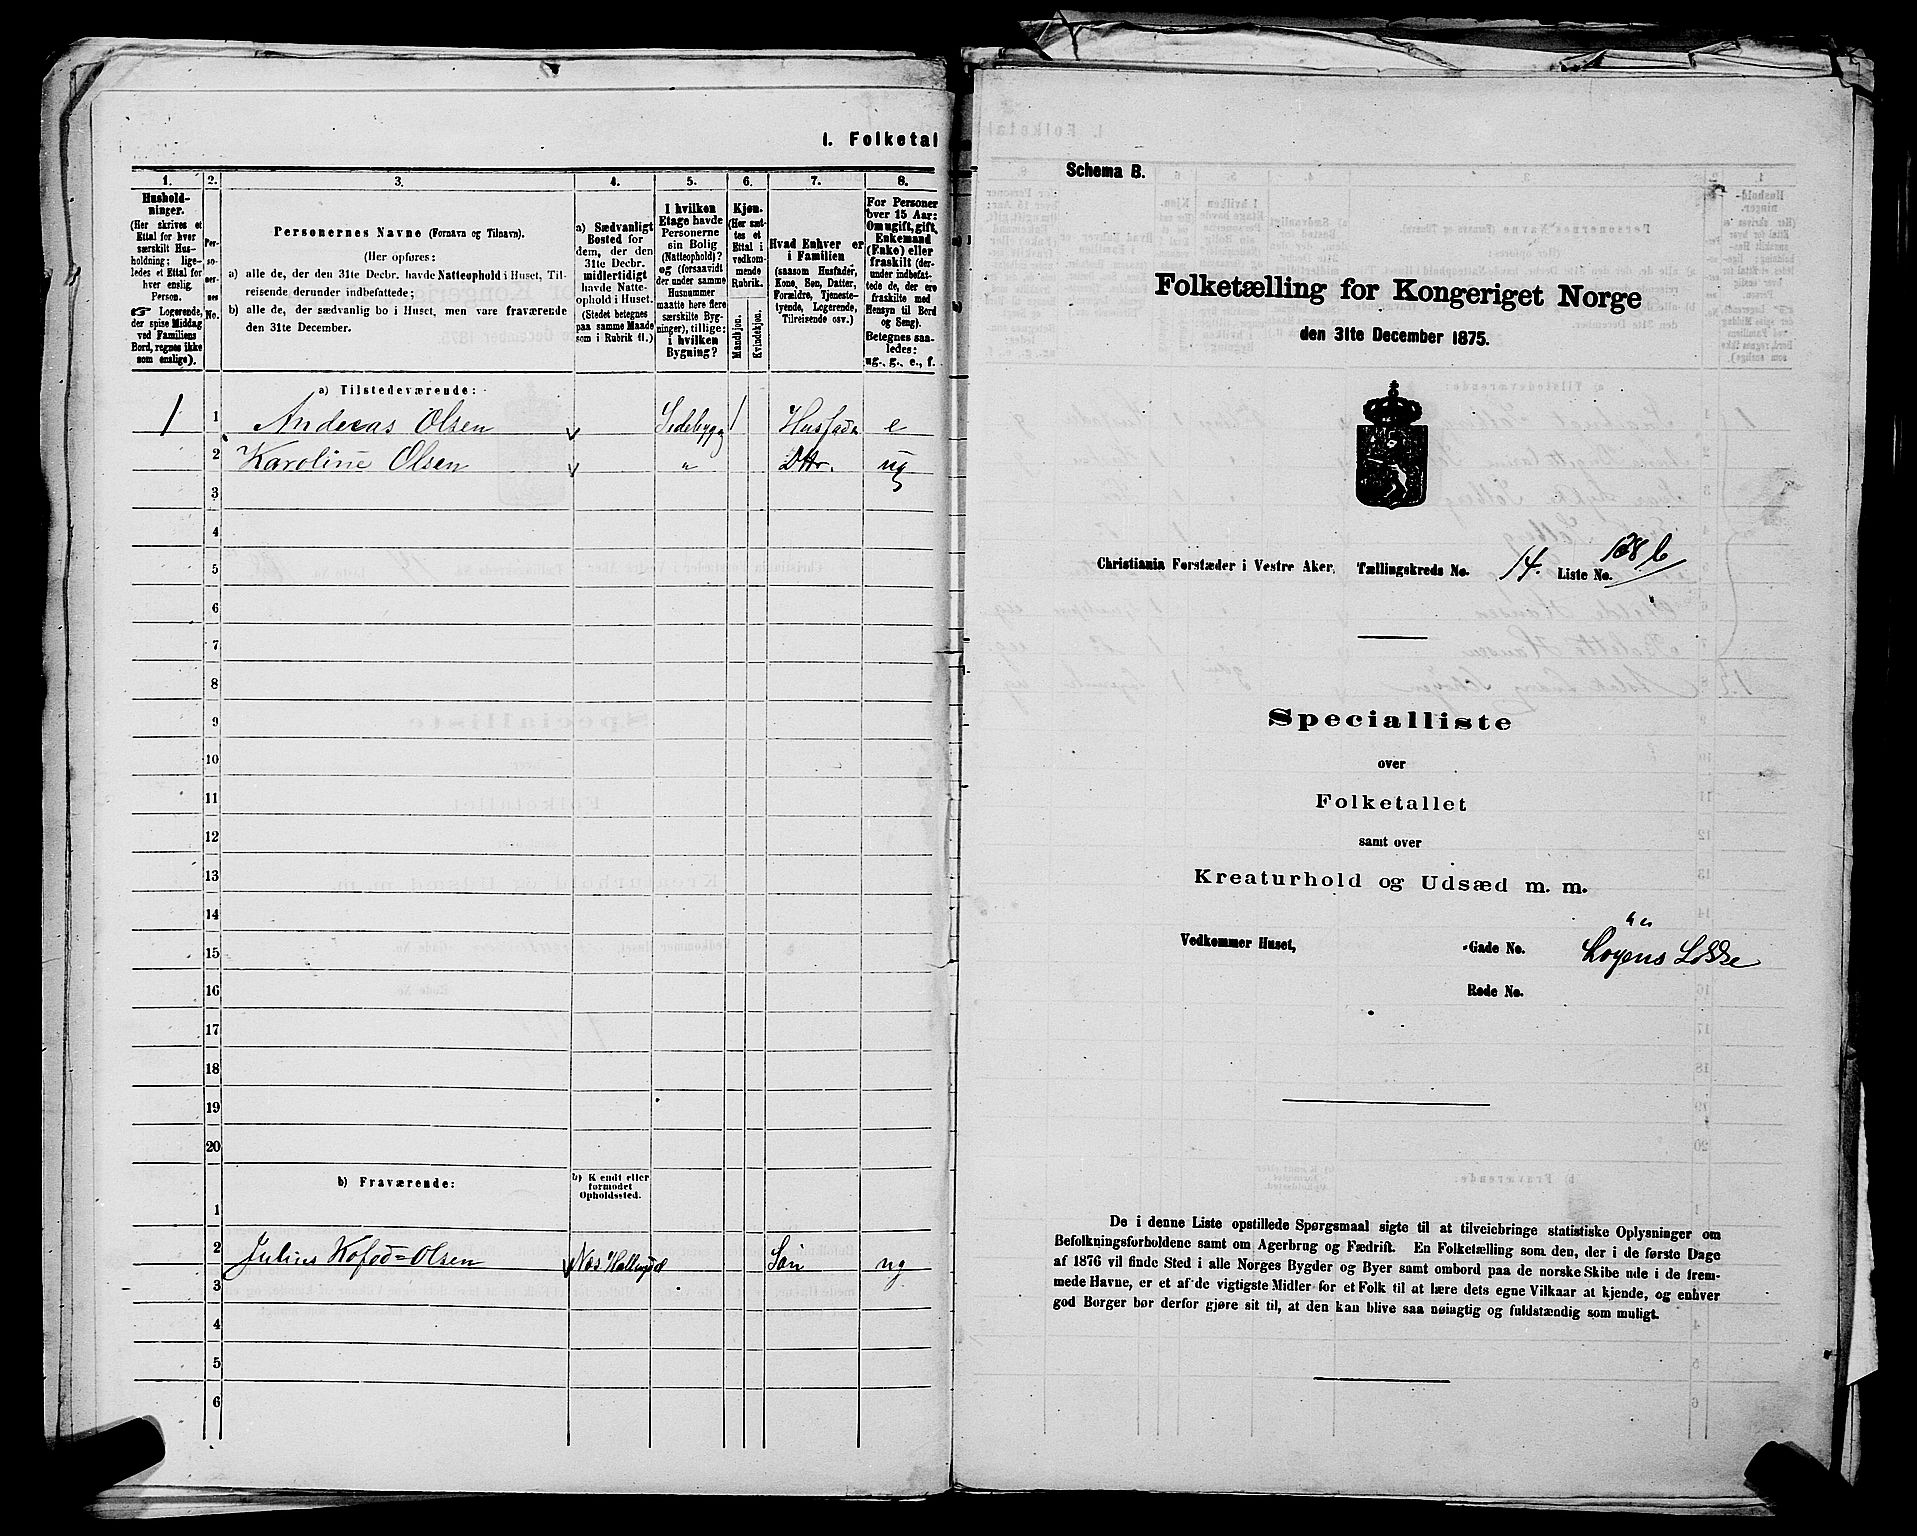 1. Folketal
1. 2. 3. 4. 5. 6. 7. 8.
Hushold-
ninger.
(Her skrives et
Ettal for hver
særskilt Hus-
holdning; lige-
ledes et Ettal for
hver enslig
Person.
Logerende,
der spise Middag
ved Familiens
Bord, regnes ikke
som enslige).
Per-
so-
ner-
nes
No.
Personernes Navne (Fornavn og Tilnavn).
(Her opføres:
a) alle de, der den 31te Decbr. havde Natteophold i Huset, Til-
reisende derunder indbefattede;
b) alle de, der sædvanlig bo i Huset, men vare fraværende
den 31te December.
a) Sædvanligt
Bosted for
dem, der den
31te Decbr.
midlertidigt
havde Natte-
ophold i Huset.
(Stedet betegnes
paa samme Maade
som i Rubrik 11.)
I hvilken
Etage havde
Personerne
sin Bolig
(Natteophold)?
og (forsaavidt
der under samme
Husnummer
maatte høre flere
særskilte Byg-
ninger), tillige:
i hvilken
Bygning?
Kjøn.
(Her sæt-
tes et
Ettal i
vedkom-
mende
Rubrik.
Mandkjøn.
Kvindekjøn.
Hvad Enhver er
i Familien
(saasom Husfader,
Kone, Søn, Datter,
Forældre, Tjeneste-
tyende, Logerende,
Tilreisende osv.)
For Personer
over 15 Aar:
Om ugift, gift,
Enkemand
(Enke) eller
fraskilt (der-
under indbefat-
tede de, der ere
fraskilte med
Hensyn til Bord
og Seng).
Betegnes saa-
ledes:
ug., g., e., f.
a) Tilstedeværende:
1 1 Andreas Olsen Sidebygn 1 Husfader e
2 Karoline Olsen " Dtr. ug
3
4
5
6
7
8
9
10
11
12
13
14
15
16
17
18
19
20
b) Fraværende:
b) Kendt eller
formodet
Opholdssted.
1
2 Julius Kofod=Olsen Næs Hallingdal Søn ug
3
4
5
6
Schema B.
Folketælling for Kongeriget Norge
den 31te December 1875.
Christiania Forstæder i Vestre Aker. Tællingskreds No. 14. Liste No. 128 b
Specialliste
over
Folketallet
samt over
Kreaturhold og Udsæd m. m.
Vedkommer Huset, -Gade No. Løgens Løkke
Rode No.
De i denne Liste opstillede Spørgsmaal sigte til at tilveiebringe statistiske Oplysninger om
Befolkningsforholdene samt om Agerbrug og Fædrift. En Folketælling som den, der i de første Dage
af 1876 vil finde Sted i alle Norges Bygder og Byer samt ombord paa de norske Skibe ude i de frem-
mede Havne, er et af de vigtigste Midler for et Folk til at lære dets egne Vilkaar at kjende, og enhver
god Borger bør derfor gjøre sit til, at den kan blive saa nøiagtig og fuldstændig som muligt.